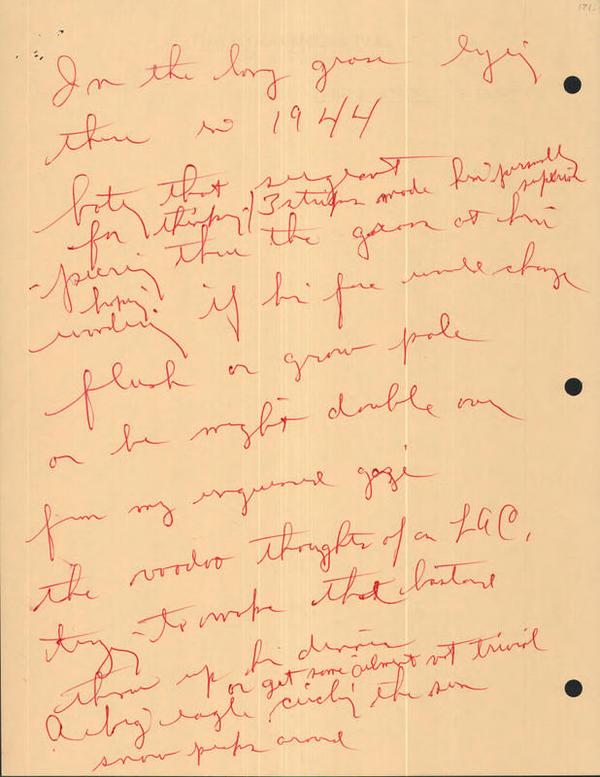 171.
In the long grass lying
there in 1944
hating that sergeant
for thinking 3 stripes made him personally
superior
- peering thru the grass at him
hoping
wondering if his face would change
flush or grow pale
or he might double over
from my gaze
the voodoo thoughts of an LAC,
trying to make that bastard
throw up his dinner
or get some ailment not trivial
A big eagle circling the sun
snow peaks around